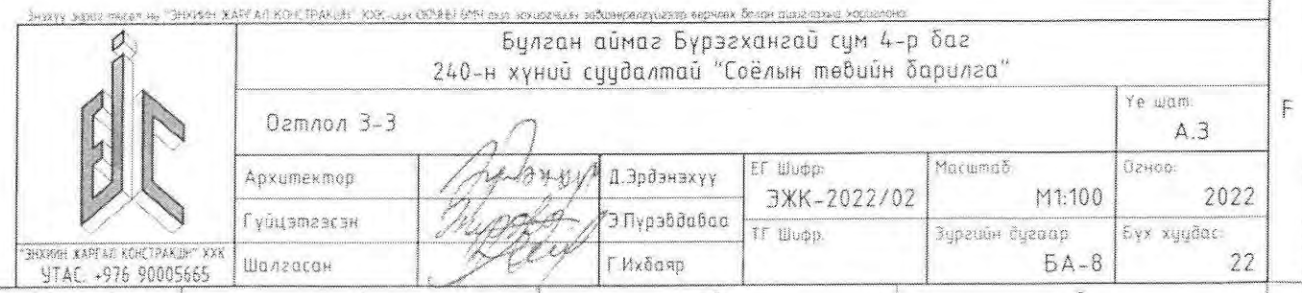 Энэхүү зураг төсөл нь "ЭНХИЙН ЖАРГАЛ КОНСТРАКШН" ХХК-ийн
Булган аймаг Бүрэгхангай сум 4-р баг
240-н хүний суудалтай "Соёлын төвийн барилга"
Огтлол 3-3
Үе шат:
А.З
Архитектор
Д.Эрдэнэхүү
ЕГ Шифр:
ЭЖК-2022/02
Масштаб:
М1:100
Огноо:
2022
Гүйцэтгэсэн
Э.Пүрэвдабаа
ТГ Шифр:
Зургийн дугаар
БА-8
Бүх хуудас:
22
Шалгасан
Г.Ихбаяр
"ЭНХИЙН ЖАРГАЛ КОНСТРАКШН" ХХК
УТАС: +976 90005665
F